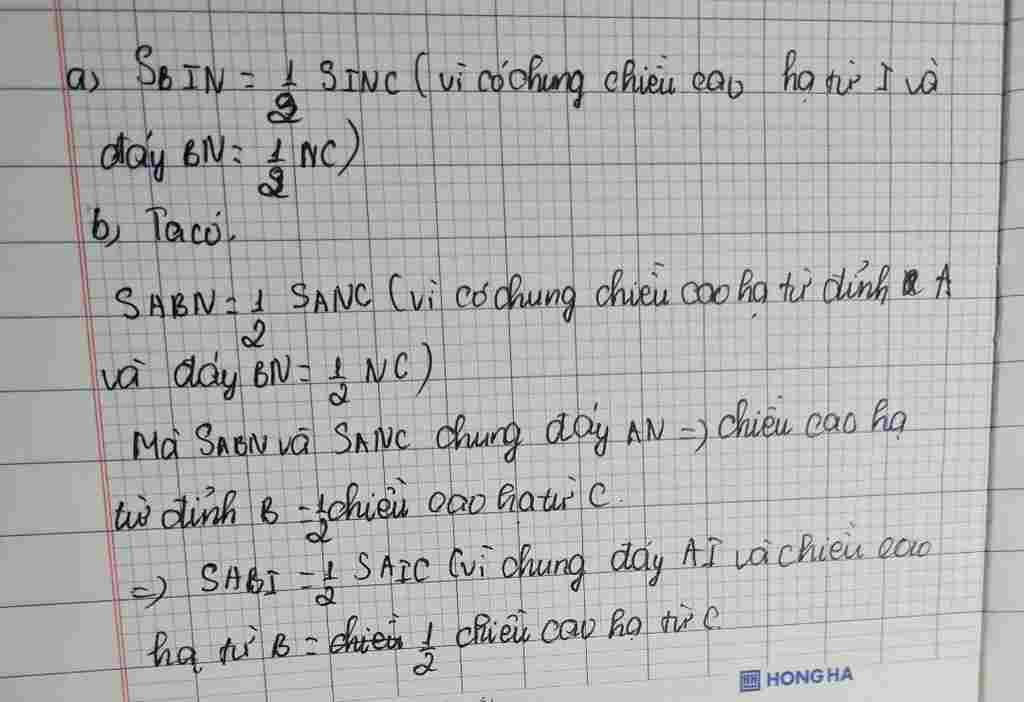 a) SBIN = 1/2 SINC (vì có chung chiều cao hạ từ I và
đáy BN = 1/2 NC)
b) Ta có.
SABN = 1/2 SANC (vì có chung chiều cao hạ từ đỉnh A
và đáy BN = 1/2 NC)
Mà SABN và SANC chung đáy AN => chiều cao hạ
từ đỉnh B = 1/2 chiều cao hạ từ C.
=> SABI = 1/2 SAIC (vì chung đáy AI và chiều cao
hạ từ B = chiều 1/2 chiều cao hạ từ C
HONG HA